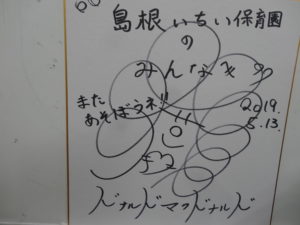 島根いちい保育園
の
みんなへ
また
あそぼうネ!!
2019.
5.13.
ドナルドマクドナルド